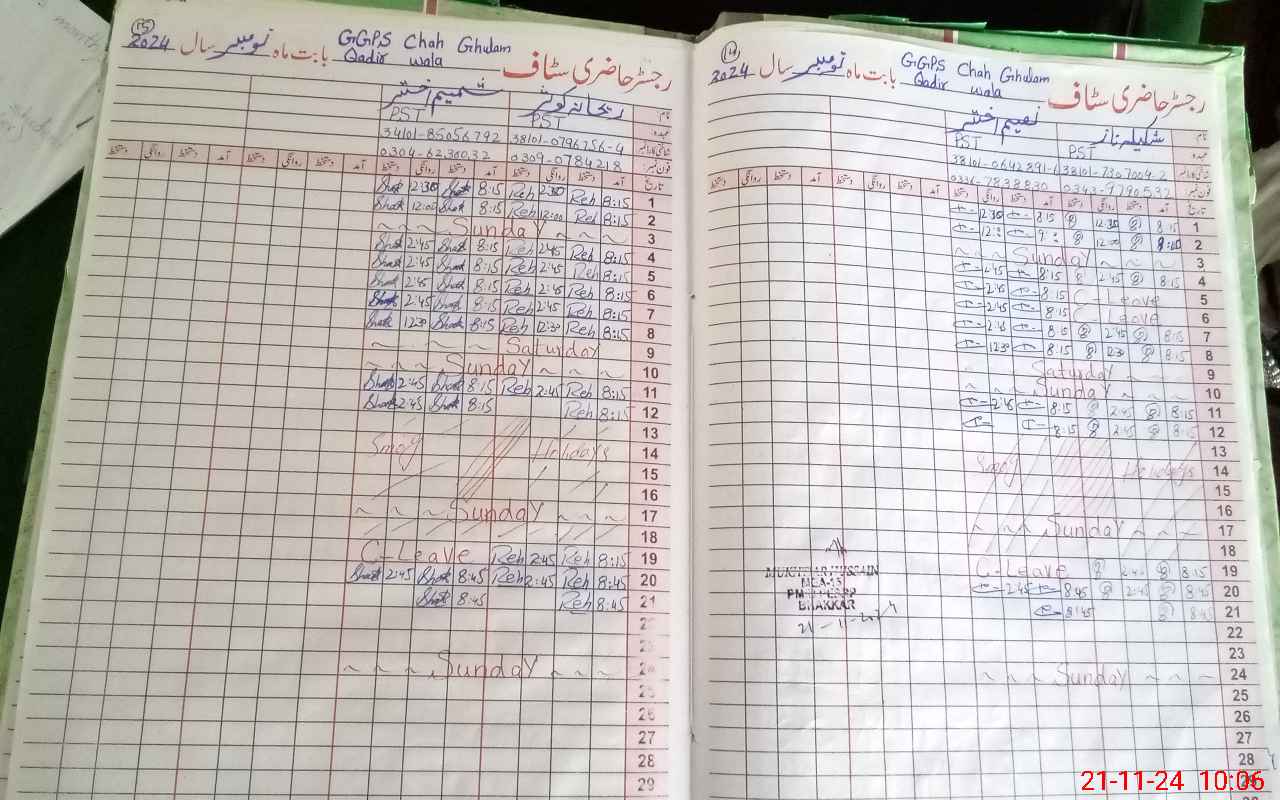 15
GGPS Chah Ghulam
رجسٹر حاضری سٹاف بابت ماہ نومبر سال 2024
Qadir wala
نام ریحانہ کوثر شمیم اختر
عہدہ PST PST
شناختی کارڈ نمبر 38101-0796756-4 34101-85056792
فون نمبر: 0309-0784218 0304-6230032
تاریخ آمد دستخط روانگی دستخط آمد دستخط روانگی دستخط آمد دستخط روانگی دستخط آمد دستخط روانگی دستخط
Shak 12:30 Shak 8:15 Reh 12:30 Reh 8:15 1
Shak 12:00 Shak 8:15 Reh 12:00 Reh 8:15 2
~ ~ ~ Sunday ~ ~ ~ 3
Shak 2:45 Shak 8:15 Reh 2:45 Reh 8:15 4
Shak 2:45 Shak 8:15 Reh 2:45 Reh 8:15 5
Shak 2:45 Shak 8:15 Reh 2:45 Reh 8:15 6
Shak 2:45 Shak 8:15 Reh 2:45 Reh 8:15 7
Shak 1230 Shak 8:15 Reh 12:30 Reh 8:15 8
~ ~ ~ ~ Saturday 9
~ ~ Sunday ~ ~ ~ 10
Shak 2:45 Shak 8:15 Reh 2:45 Reh 8:15 11
Shak 2:45 Shak 8:15 Reh 8:15 12
13
Smog Holidays 14
15
16
~ ~ ~ Sunday ~ ~ ~ 17
18
C-Leave Reh 2:45 Reh 8:15 19
Shak 2:45 Shak 8:45 Reh 2:45 Reh 8:45 20
Shak 8:45 Reh 8:45 21
22
23
~ ~ ~ ~ Sunday ~ ~ ~ 24
25
26
27
28
29
14
GGPS Chah Ghulam
رجسٹر حاضری سٹاف بابت ماہ نومبر سال 2024
Qadir wala
نام شکیلہ ناز نسیم اختر
عہدہ PST PST
شناختی کارڈ نمبر 38101-7307009-2 38101-0642891-6
فون نمبر: 0343-9790532 0336-7838830
تاریخ آمد دستخط روانگی دستخط آمد دستخط روانگی دستخط آمد دستخط روانگی دستخط آمد دستخط روانگی دستخط
12:30 8:15 12:30 8:15 1
12: 9: 12:00 8:10 2
~ ~ Sunday ~ ~ ~ 3
2:45 8:15 2:45 8:15 4
2:45 8:15 C-Leave 5
2:45 8:15 C-Leave 6
2:45 8:15 2:45 8:15 7
1230 8:15 1230 8:15 8
~ ~ ~ Saturday ~ ~ 9
~ ~ ~ Sunday ~ ~ ~ 10
2:45 8:15 2:45 8:15 11
8:15 2:45 8:15 12
13
Smog Holidays 14
15
16
~ ~ ~ Sunday ~ ~ ~ 17
18
C-Leave 2:45 8:15 19
2:45 8:45 2:45 8:45 20
8:45 8:45 21
22
23
~ ~ ~ Sunday ~ ~ ~ 24
25
26
27
28
MUKHTIAR HUSSAIN
MEA-15
BHAKKAR
21-11-2024
21-11-24 10:06